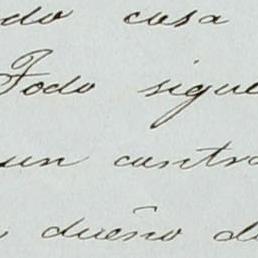 do cosa
Todo sigue
un contra
dueño de